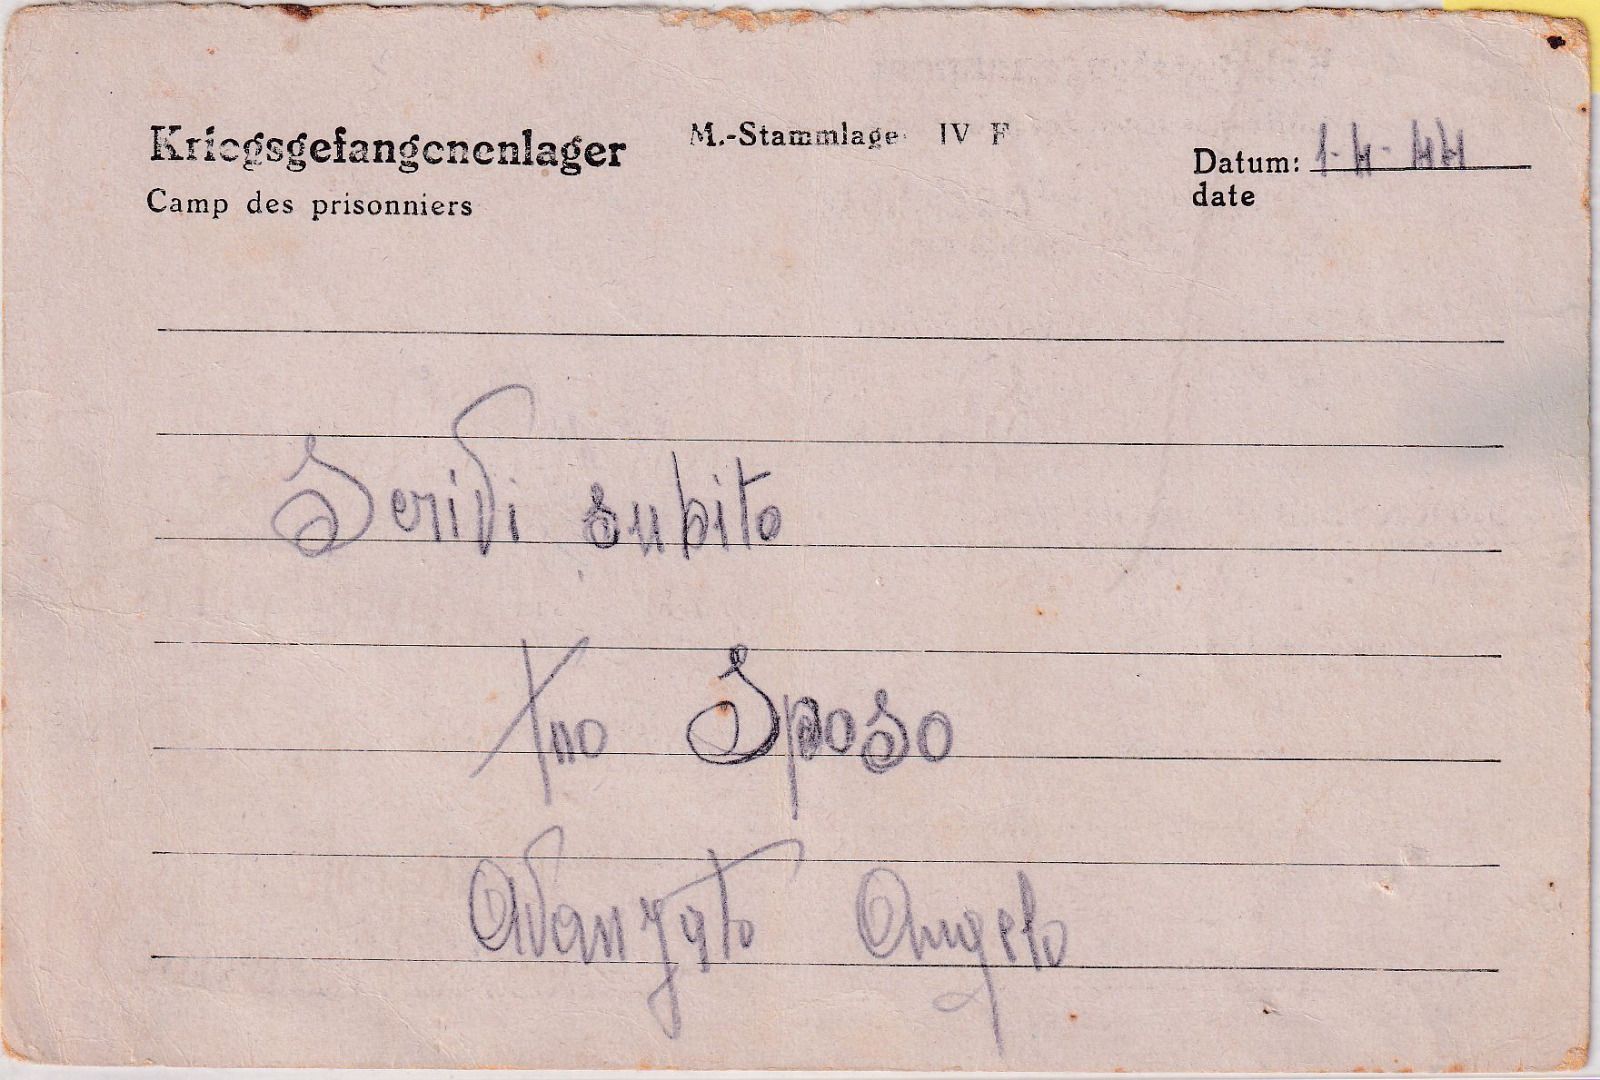 Kriegsgefangenenlager M.-Stammlager IV F Datum: 1-4-44
Camp des prisonniers date
Scrivi subito
tuo Sposo
Avanzato Angelo